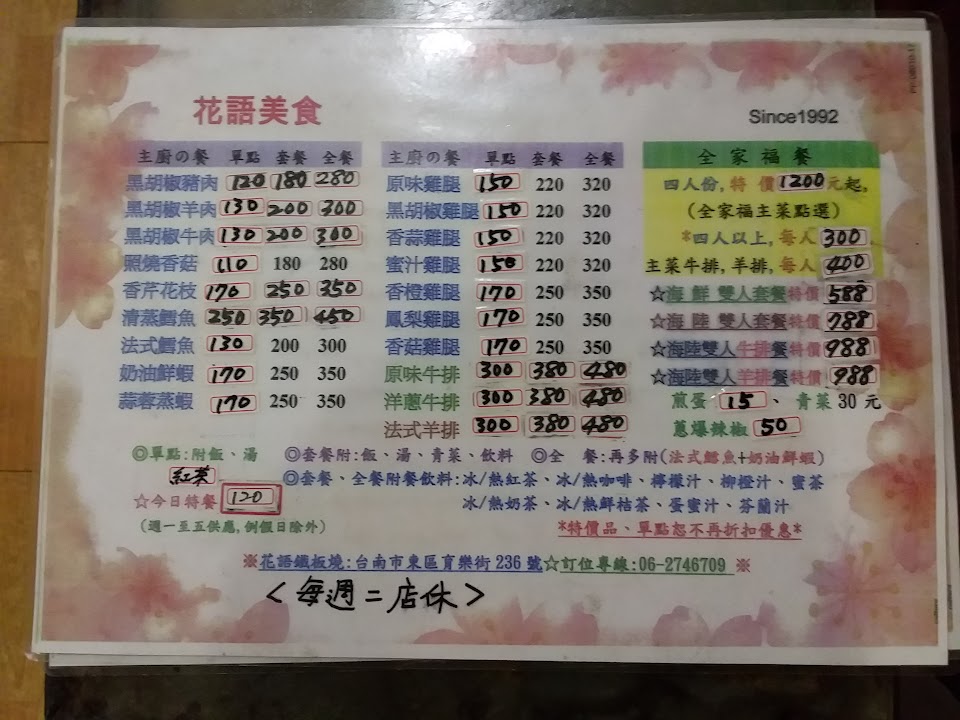 花語美食
Since1992
主廚の餐 單點 套餐 全餐
黑胡椒豬肉 120 180 280
黑胡椒羊肉 130 200 300
黑胡椒牛肉 130 200 300
照燒香菇 110 180 280
香芹花枝 170 250 350
清蒸鱈魚 250 350 450
法式鱈魚 130 200 300
奶油鮮蝦 170 250 350
蒜蓉蒸蝦 170 250 350
主廚の餐 單點 套餐 全餐
原味雞腿 150 220 320
黑胡椒雞腿 150 220 320
香蒜雞腿 150 220 320
蜜汁雞腿 150 220 320
香橙雞腿 170 250 350
鳳梨雞腿 170 250 350
香菇雞腿 170 250 350
原味牛排 300 380 480
洋蔥牛排 300 380 480
法式羊排 300 380 480
全家福餐
四人份,特價1200元起,
(全家福主菜點選)
*四人以上,每人300
主菜牛排,羊排,每人400
☆海鮮 雙人套餐特價588
☆海陸 雙人套餐特價788
☆海陸雙人牛排餐特價988
☆海陸雙人羊排餐特價988
煎蛋 15、青菜 30 元
蔥爆辣椒 50
◎單點:附飯、湯 ◎套餐附:飯、湯、青菜、飲料 ◎全 餐:再多附(法式鱈魚+奶油鮮蝦)
紅茶 ◎套餐、全餐附餐飲料:冰/熱紅茶、冰/熱咖啡、檸檬汁、柳橙汁、蜜茶
☆今日特餐 120 冰/熱奶茶、冰/熱鮮桔茶、蛋蜜汁、芬蘭汁
(週一至五供應,例假日除外) *特價品、單點恕不再折扣優惠*
※花語鐵板燒:台南市東區育樂街 236 號☆訂位專線:06-2746709 ※
<每週二店休>